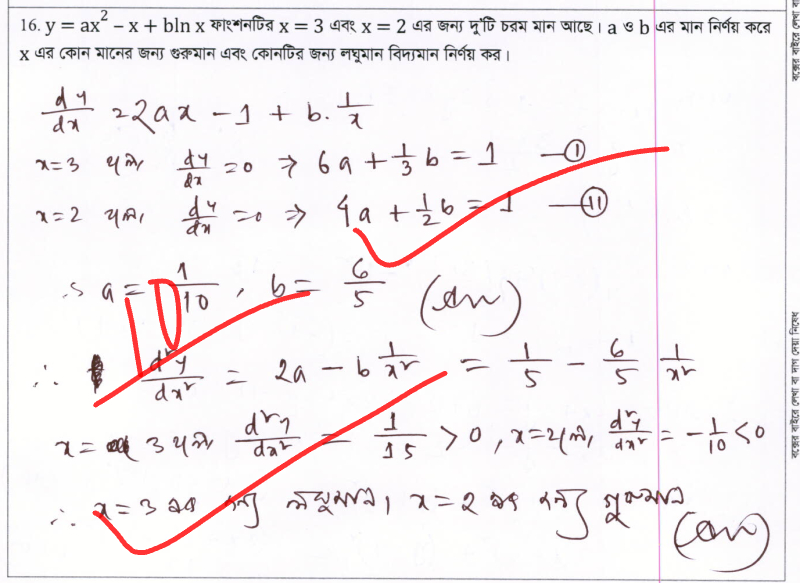 16. y = ax² − x + blnx ফাংশনটির x = 3 এবং x = 2 এর জন্য দু'টি চরম মান আছে। a ও b এর মান নির্ণয় করে
x এর কোন মানের জন্য গুরুমান এবং কোনটির জন্য লঘুমান বিদ্যমান নির্ণয় কর।
dy/dx = 2ax − 1 + b. 1/x
x=3 হলে, dy/dx = 0 ⇒ 6a + 1/3 b = 1 —(I)
x=2 হলে, dy/dx = 0 ⇒ 4a + 1/2 b = 1 —(II)
∴ a = 1/10, b = 6/5 (Ans)
10
∴ d²y/dx² = 2a − b 1/x² = 1/5 − 6/5 1/x²
x = 3 হলে, d²y/dx² = 1/15 > 0, x=2 হলে, d²y/dx² = −1/10 < 0
∴ x = 3 এর জন্য লঘুমান। x = 2 এর জন্য গুরুমান
(Ans)
বক্সের বাইরে লেখা বা দাগ দেয়া নিষেধ